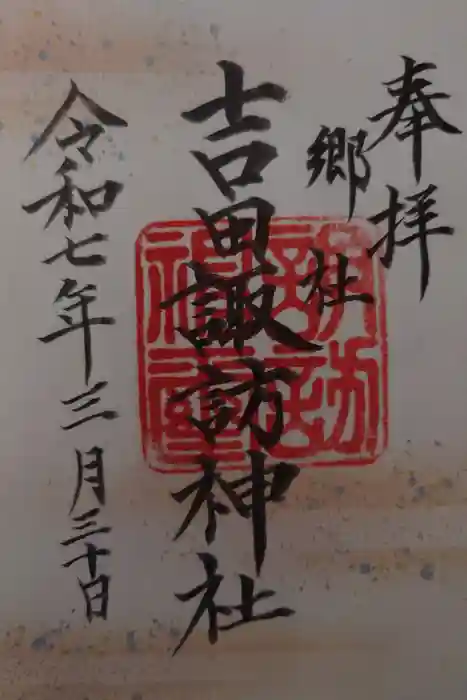 奉拝
郷社
吉田諏訪神社
令和七年三月三十日
諏訪
神璽